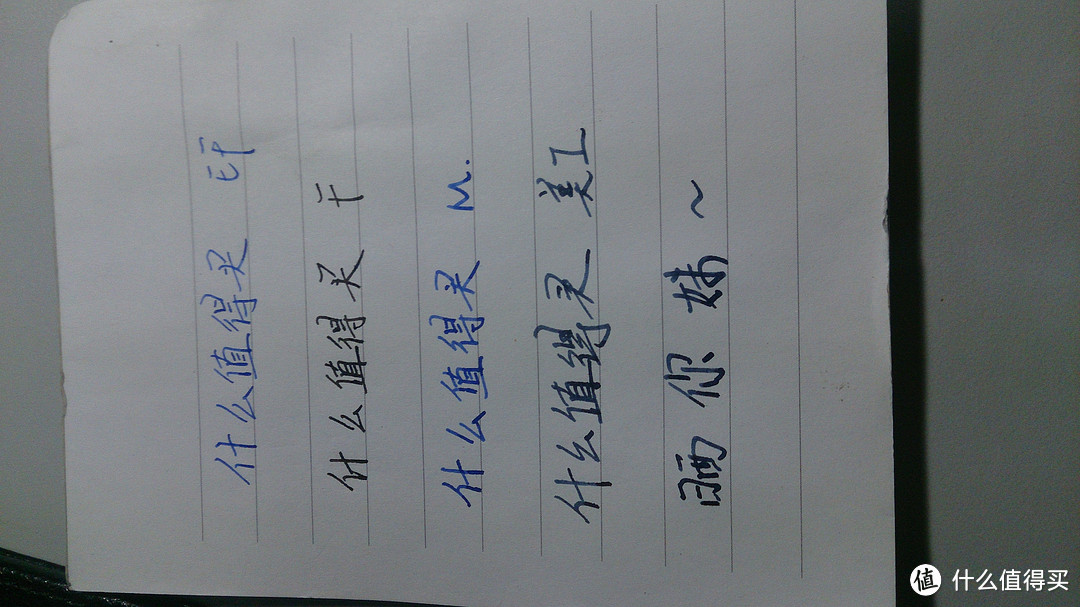 什么值得买 EF
什么值得买 F
什么值得买 M.
什么值得买 美工
晒你妹~
什么值得买